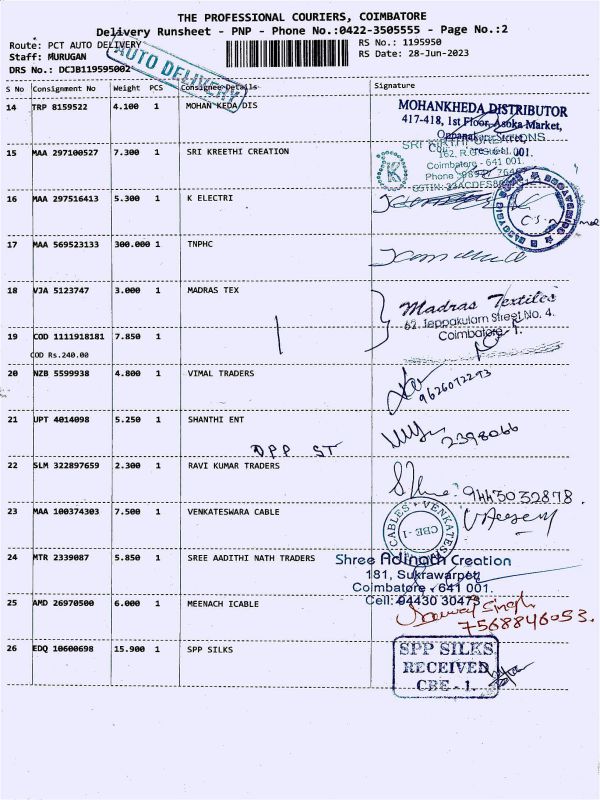 THE PROFESSIONAL COURIERS, COIMBATORE
Delivery Runsheet - PNP - Phone No.:0422-3505555 - Page No.:2
Route: PCT AUTO DELIVERY
Staff: MURUGAN
DRS No.: DCJB119595002
RS No.: 1195950
RS Date: 28-Jun-2023
AUTO DELIVERY
S No Consignment No Weight PCS Consignee Details Signature
14 TRP 8159522 4.100 1 MOHAN KEDA DIS
MOHANKHEDA DISTRIBUTOR
417-418, 1st Floor, Asoka Market,
15 MAA 297100527 7.300 1 SRI KREETHI CREATION
Coimbatore - 641 001.
16 MAA 297516413 5.300 1 K ELECTRI
17 MAA 569523133 300.000 1 TNPHC
18 VJA 5123747 3.000 1 MADRAS TEX
Madras Textiles
62, Teppakulam Street No. 4.
Coimbatore - 1.
19 COD 1111918181 7.850 1
COD Rs.240.00
20 NZB 5599938 4.800 1 VIMAL TRADERS
9626072293
21 UPT 4014098 5.250 1 SHANTHI ENT
2398066
DPP ST
22 SLM 322897659 2.300 1 RAVI KUMAR TRADERS
9443032878
23 MAA 100374303 7.500 1 VENKATESWARA CABLE
CBE - 1
24 MTR 2339087 5.850 1 SREE AADITHI NATH TRADERS
Shree Adinath Creation
181, Sukrawarpet,
Coimbatore - 641 001.
Cell: 94430 30473
25 AMD 26970500 6.000 1 MEENACH ICABLE
7568846053.
26 EDQ 10600698 15.900 1 SPP SILKS
SPP SILKS
RECEIVED
CBE - 1.